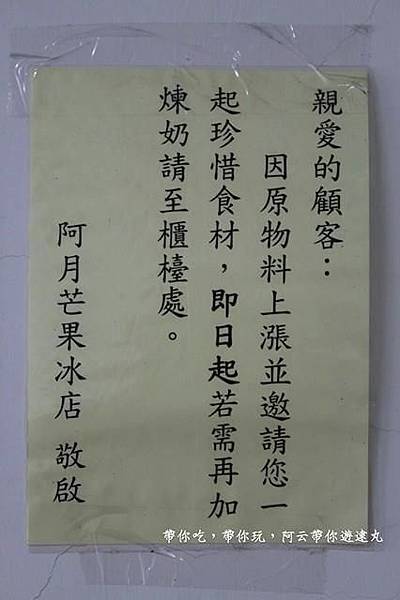 親愛的顧客：
因原物料上漲並邀請您一
起珍惜食材，即日起若需再加
煉奶請至櫃檯處。
阿月芒果冰店 敬啟
帶你吃，帶你玩，阿云帶你遊達丸